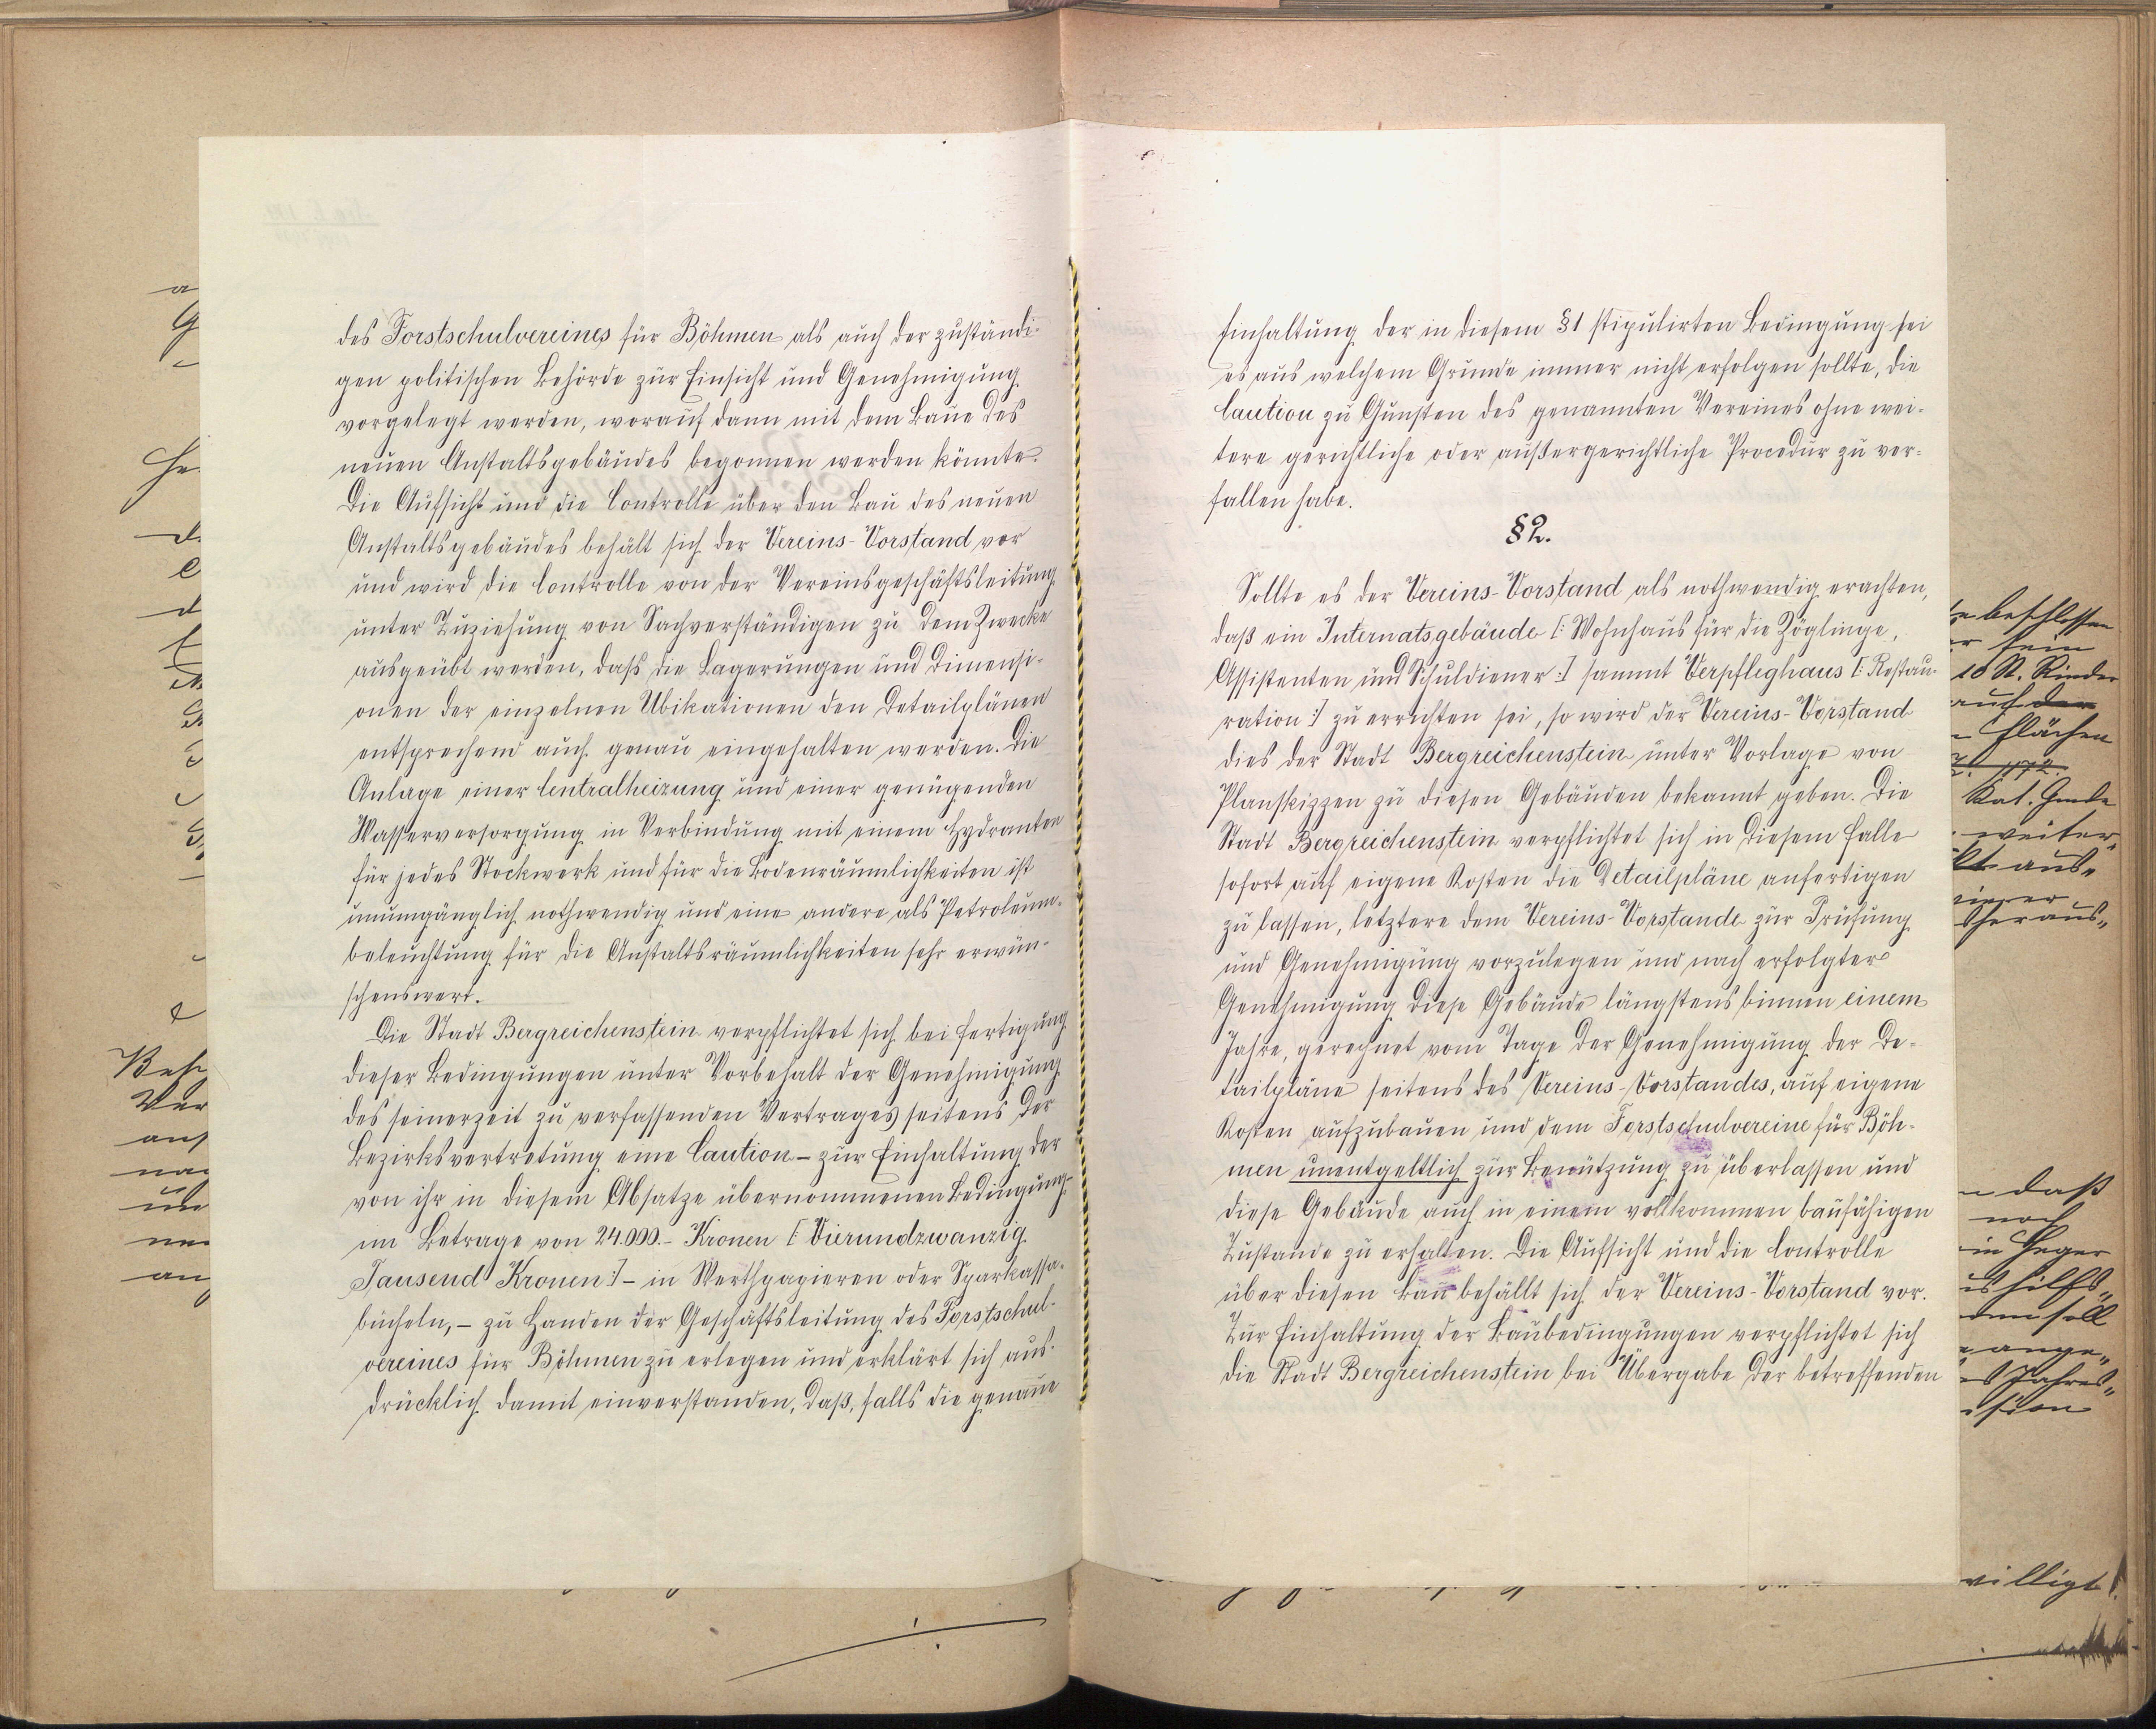 des Forstschulvereines für Böhmen als auch der zuständi-
gen politischen Behörde zur Einsicht und Genehmigung
vorgelegt werden, worauf dann mit dem Baue des
neuen Anstaltsgebäudes begonnen werden könnte.
Die Aufsicht und die Controlle über den Bau des neuen
Anstaltsgebäudes behält sich der Vereins-Vorstand vor
und wird die Controlle von der Vereinsgeschäftsleitung
unter Zuziehung von Sachverständigen zu dem Zwecke
ausgeübt werden, dass die Lagerungen und Dimensi-
onen der einzelnen Ubikationen den Detailplänen
entsprechend auch genau eingehalten werden. Die
Anlage einer Centralheizung und einer genügenden
Wasserversorgung in Verbindung mit einem Hydranten
für jedes Stockwerk und für die Bodenräumlichkeiten ist
unumgänglich nothwendig und eine andere als Petroleum-
beleuchtung für die Anstaltsräumlichkeiten sehr erwün-
schenswert.
Die Stadt Bergreichenstein verpflichtet sich bei Fertigung
dieser Bedingungen unter Vorbehalt der Genehmigung
des seinerzeit zu verfassenden Vertrages seitens der
Bezirksvertretung eine Caution – zur Einhaltung der
von ihr in diesem Absatze übernommenen Bedingung-
im Betrage von 24.000.- Kronen [: Vierundzwanzig
Tausend Kronen :] – in Werthpapieren oder Sparkassa-
bücheln, – zu Handen der Geschäftsleitung des Forstschul-
vereines für Böhmen zu erlegen und erklärt sich aus-
drücklich damit einverstanden, daß, falls die genaue
Einhaltung der in diesem §1 stipulirten Bedingung sei
es aus welchem Grunde immer nicht erfolgen sollte, die
Caution zu Gunsten des genannten Vereines ohne wei-
tere gerichtliche oder außergerichtliche Procedur zu ver-
fallen habe.
§2.
Sollte es der Vereins-Vorstand als nothwendig erachten,
daß ein Internatsgebäude [: Wohnhaus für die Zöglinge,
Assistenten und Schuldiener :] sammt Verpfleghaus [: Restau-
ration :] zu errichten sei, so wird der Vereins-Vorstand
dies der Stadt Bergreichenstein unter Vorlage von
Planskizzen zu diesen Gebäuden bekannt geben. Die
Stadt Bergreichenstein verpflichtet sich in diesem Falle
sofort auf eigene Kosten die Detailpläne anfertigen
zu lassen, letztere dem Vereins-Vorstande zur Prüfung
und Genehmigung vorzulegen und nach erfolgter
Genehmigung diese Gebäude längstens binnen einem
Jahre, gerechnet vom Tage der Genehmigung der De-
tailpläne seitens des Vereins-Vorstandes, auf eigene
Kosten aufzubauen und dem Forstschulvereine für Böh-
men unentgeltlich zur Benützung zu überlassen und
diese Gebäude auch in einem vollkommen baufähigen
Zustande zu erhalten. Die Aufsicht und die Controlle
über diesen Bau behällt sich der Vereins-Vorstand vor.
Zur Einhaltung der Baubedingungen verpflichtet sich
die Stadt Bergreichenstein bei Übergabe der betreffenden
beschlossen
sein
18 St. Rinder
auch der
Flächen
Kat. Gmde
weiter„
aus„
heraus„
daß
noch
Heger
soll
ange„
Jahres„
willigt!